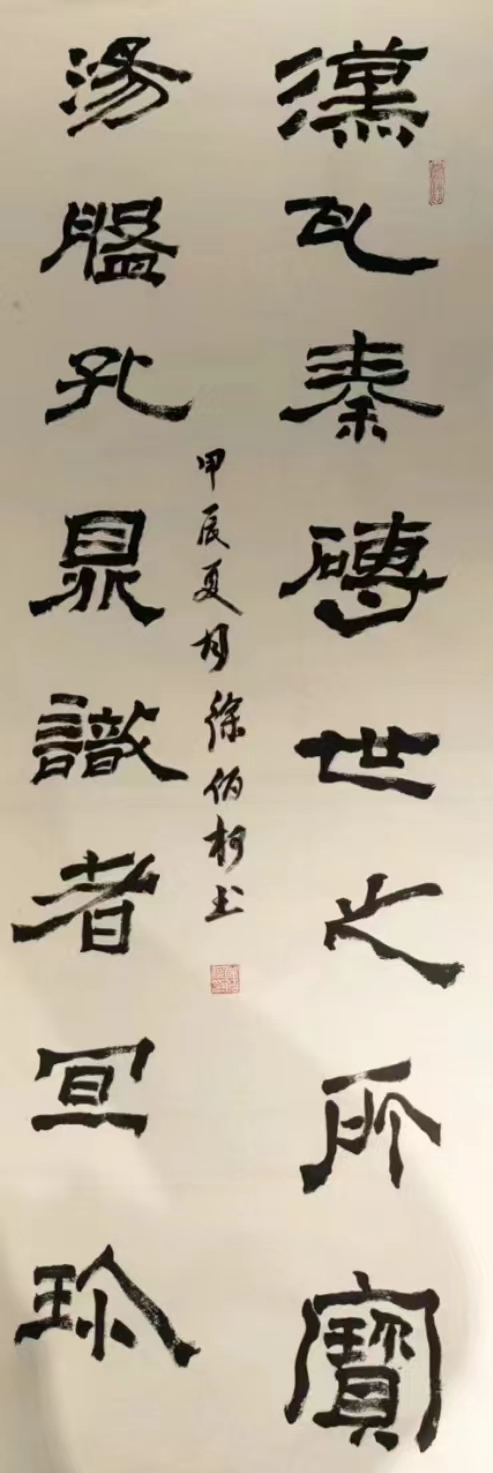 漢瓦秦磚世之所寶
湯盤孔鼎識者宜珍
甲辰夏月徐伯柯書